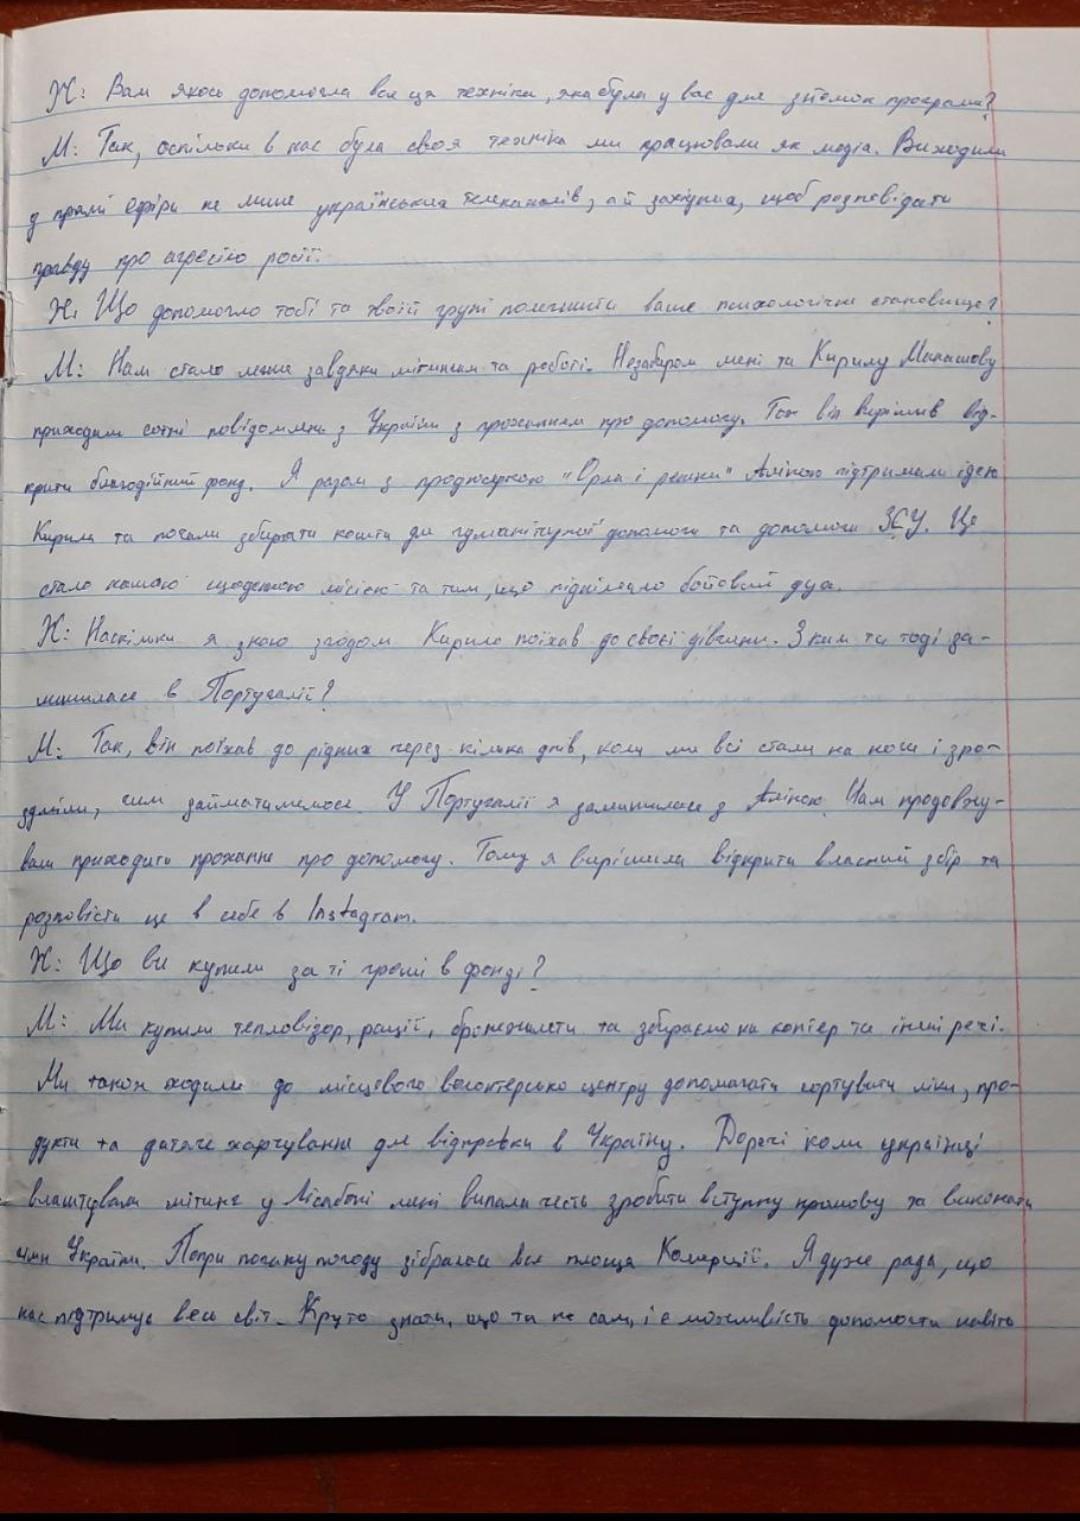 Ж: Вам якось допомогла вся ця техніка, яка була у вас для зйомок програми?
М: Так, оскільки в нас була своя техніка ми працювали як медіа. Виходили
у прямі ефіри не лише українських телеканалів, а й західних, щоб розповідати
правду про агресію росії.
Ж: Що допомогло тобі та твоїй групі полегшити ваше психологічне становище?
М: Нам стало легше завдяки мітингам та роботі. Незабаром мені та Кирилу
приходили сотні повідомлень з України з проханням про допомогу. Тож він вирішив від-
крити благодійний фонд. Я разом з продюсеркою "Орла і решки" Аліною підтримали ідею
Кирила та почали збирати кошти для гуманітарної допомоги та допомоги ЗСУ. Це
стало нашою щоденною місією та тим, що піднімало бойовий дух.
Ж: Наскільки я знаю згодом Кирило поїхав до своєї дівчини. З ким ти тоді за-
лишилася в Португалії?
М: Так, він поїхав до рідних через кілька днів, коли ми всі стали на ноги і зро-
зуміли, чим займатимемося. У Португалії я залишилася з Аліною. Нам продовжу-
вали приходити прохання про допомогу. Тому я вирішила відкрити власний збір та
розповісти це в себе в Instagram.
Ж: Що ви купили за ті гроші в фонді?
М: Ми купили тепловізор, рації, бронежилети та збираємо на коптер та інші речі.
Ми також ходили до місцевого волонтерсько центру допомагати сортувати ліки, про-
дукти та дитяче харчування для відправки в Україну. Доречі коли українці
влаштували мітинг у Лісабоні мені випала честь зробити вступну промову та виконати
гімн України. Попри погану погоду зібралася вся площа Комерції. Я дуже рада, що
нас підтримує весь світ. Круто знати, що ти не сам, і є можливість допомогти навіть